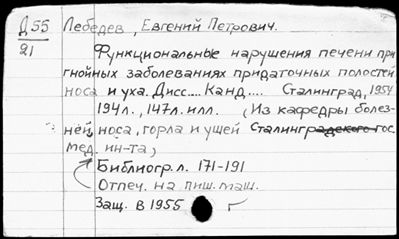 Д55 Лебедев, Евгений Петрович.
21
Функциональные нарушения печени при
гнойных заболеваниях придаточных полостей
носа и уха. Дисс.... Канд.... Сталинград, 1954
194л., 147л. илл. (Из кафедры болез-
ней, носа, горла и ушей Сталинградского гос.
мед. ин-та)
Библиогр. л. 171-191
Отпеч. на пиш. маш.
Защ. в 1955